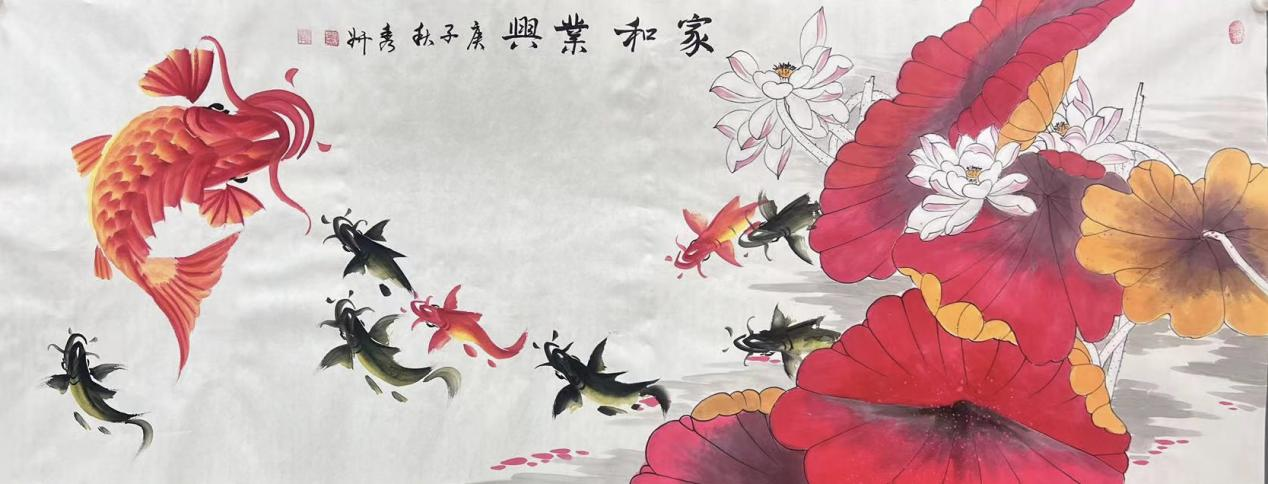 家和業興庚子秋秀妍